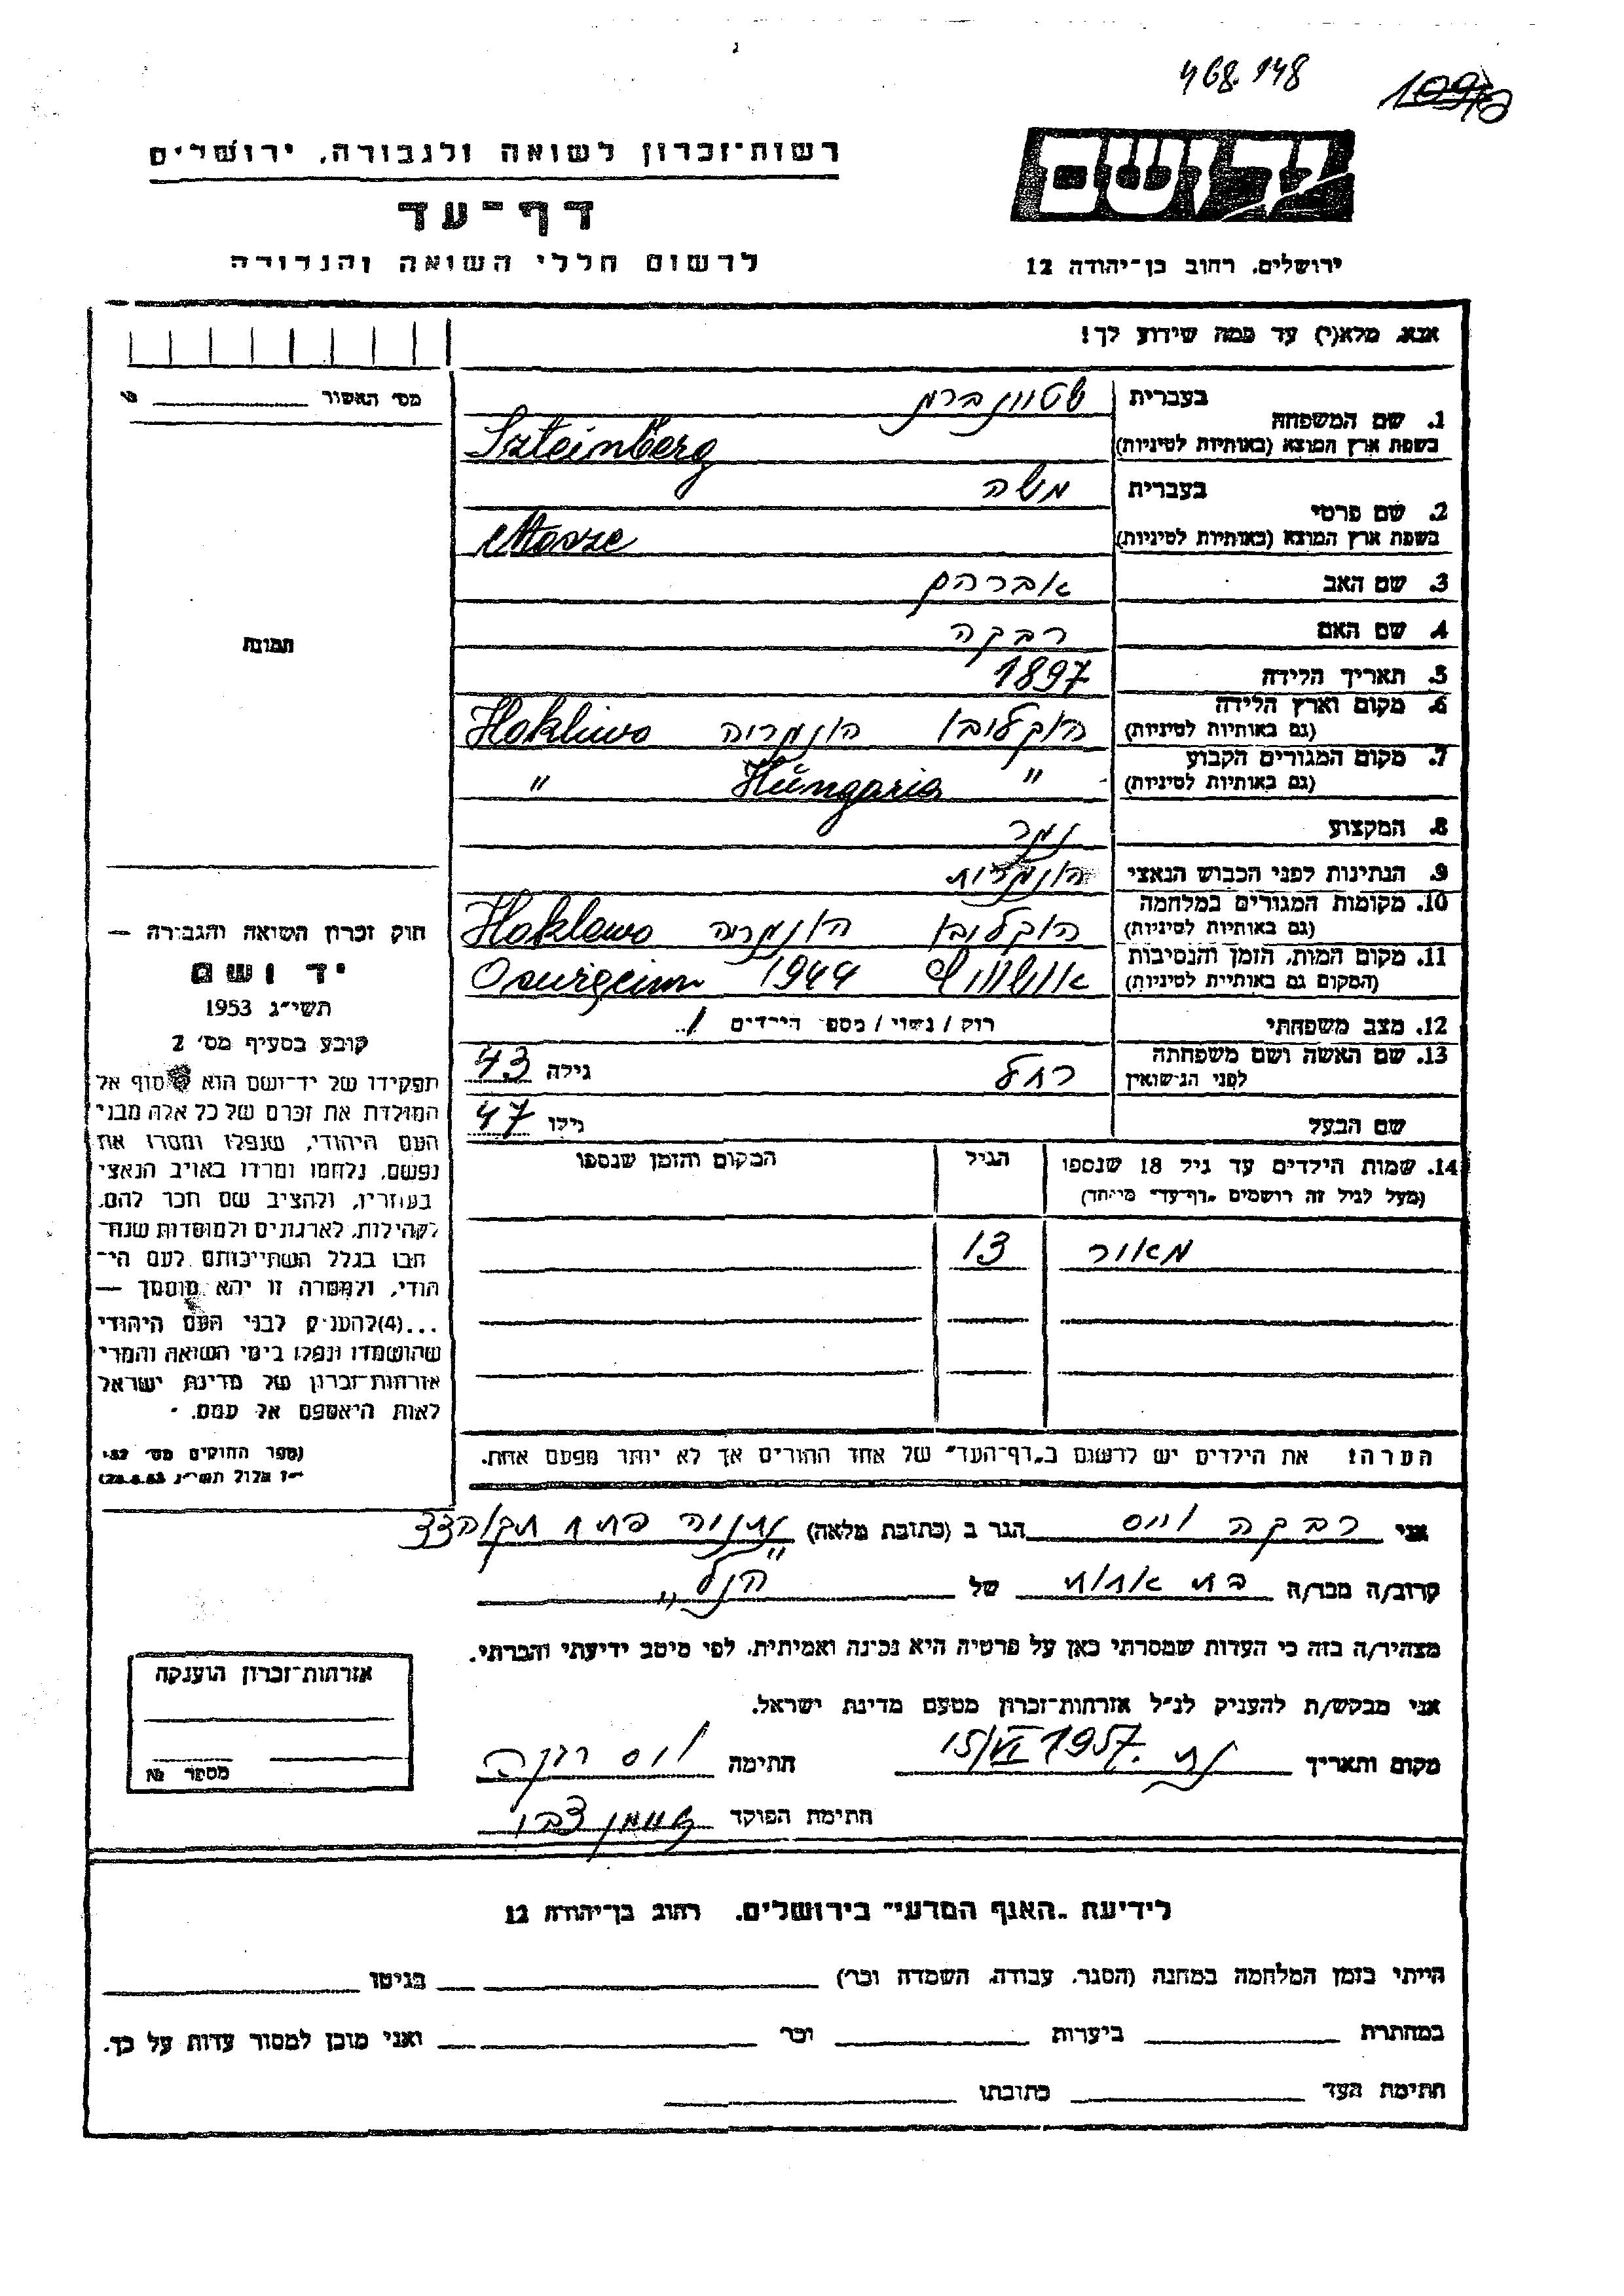 468.148
רשות־זכרון לשואה ולגבורה, ירושלים
דף־עד
לרשום חללי השואה והגבורה
ירושלים, רחוב בן־יהודה 12
אנא, מלא(י) עד כמה שידוע לך!
מס' האשור
1. שם המשפחה בעברית
בשפת ארץ המוצא (באותיות לטיניות) Szteinberg
2. שם פרטי בעברית משה
בשפת ארץ המוצא (באותיות לטיניות) Mosze
3. שם האב אברהם
4. שם האם רבקה
5. תאריך הלידה 1897
6. מקום וארץ הלידה (גם באותיות לטיניות) הוקלובו הונגריה Hokliwo
7. מקום המגורים הקבוע (גם באותיות לטיניות) " Hungaria "
8. המקצוע
9. הנתינות לפני הכבוש הנאצי הונגרית
10. מקומות המגורים במלחמה (גם באותיות לטיניות) הוקלובו הונגריה Hoklewo
11. מקום המות, הזמן והנסיבות (המקום גם באותיות לטיניות) 1944
12. מצב משפחתי רוק / נשוי / מספר הילדים 1
13. שם האשה ושם משפחתה לפני הנישואין רחל גילה 43
שם הבעל גילו 47
14. שמות הילדים עד גיל 18 שנספו הגיל המקום והזמן שנספו
(מעל לגיל זה רושמים "דף־עד" מיוחד)
מאור 13
הערה: את הילדים יש לרשום ב"דף־העד" של אחד ההורים אך לא יותר מפעם אחת.
תמונה
חוק זכרון השואה והגבורה —
יד ושם
תשי"ג 1953
קובע בסעיף מס' 2
תפקידו של יד־ושם הוא לאסוף אל
המולדת את זכרם של כל אלה מבני
העם היהודי, שנפלו ומסרו את
נפשם, נלחמו ומרדו באויב הנאצי
בעוזריו, ולהציב שם וזכר להם,
לקהילות, לארגונים ולמוסדות שנח־
רבו בגלל השתייכותם לעם הי־
הודי, ולמטרה זו יהא מוסמך —
...(4)להעניק לבני העם היהודי
שהושמדו ונפלו בימי השואה והמרי
אזרחות־זכרון של מדינת ישראל
לאות היאספם אל עמם.
(ספר החוקים מס' 132
אני רבקה וייס הגר ב (כתובת מלאה) נתניה
קרוב/ה מכר/ה בת אחות של "הנ"ל"
מצהיר/ה בזה כי העדות שמסרתי כאן על פרטיה היא נכונה ואמיתית, לפי מיטב ידיעתי והכרתי.
אני מבקש/ת להעניק לנ"ל אזרחות־זכרון מטעם מדינת ישראל.
מקום ותאריך 15/VI 1957. חתימה וייס רבקה
חתימת הפוקד
אזרחות־זכרון הוענקה
מספר №
לידיעת "האגף המדעי" בירושלים, רחוב בן־יהודה 12
הייתי בזמן המלחמה במחנה (הסגר, עבודה, השמדה וכו') בגיטו
במחתרת ביערות וכו' ואני מוכן למסור עדות על כך.
חתימת העד כתובתו